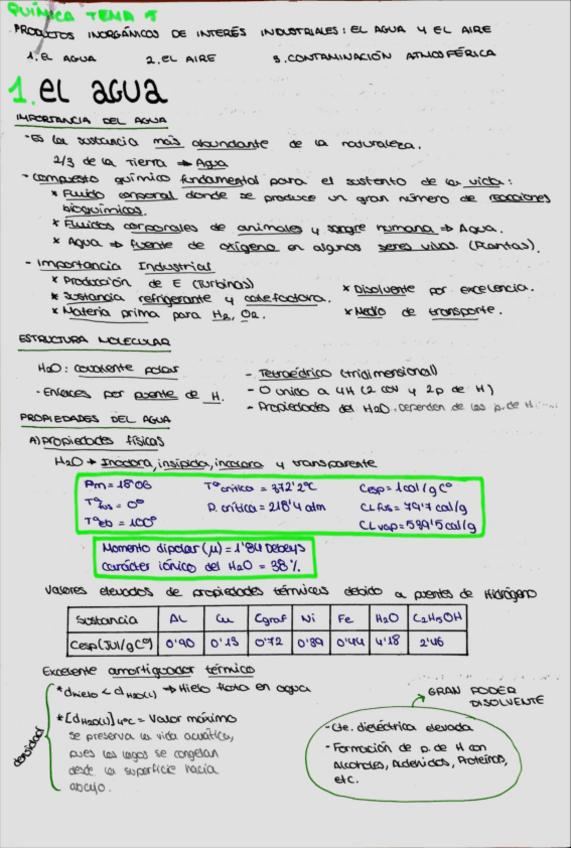 QUÍMICA TEMA 5
PRODUCTOS INORGÁNICOS DE INTERÉS INDUSTRIALES: EL AGUA Y EL AIRE
1. EL AGUA 2. EL AIRE 3. CONTAMINACIÓN ATMOSFÉRICA
1. EL AGUA
IMPORTANCIA DEL AGUA
- Es la sustancia más abundante de la naturaleza.
2/3 de la Tierra → Agua
- Compuesto químico fundamental para el sustento de la vida:
* Fluido corporal donde se produce un gran número de reacciones
bioquímicas.
* Fluidos corporales de animales y sangre humana ⇒ Agua.
* Agua ⇒ fuente de oxígeno en algunos seres vivos (Plantas).
- Importancia Industrial
* Producción de E (turbinas) * Disolvente por excelencia.
* Sustancia refrigerante y calefactora. * Medio de transporte.
* Materia prima para H2, O2.
ESTRUCTURA MOLECULAR
H2O: covalente polar - Tetraédrico (tridimensional)
- Enlaces por puente de H. - O unido a 4H (2 cov y 2 p de H)
- Propiedades del H2O. Dependen de los p. de H.
PROPIEDADES DEL AGUA
A) Propiedades físicas
H2O → Inodora, insípida, incolora y transparente
Pm = 18'06 Tª crítica = 372'2ºC Cesp = 1cal/g Cº
Tªfus = 0º P. crítica = 218'4 atm CLfus = 79'7 cal/g
Tªeb = 100º CLvap = 539'5 cal/g
Momento dipolar (μ) = 1'84 Debeys
Carácter iónico del H2O = 38%
Valores elevados de propiedades térmicas debido a puentes de Hidrógeno
Sustancia AL Cu Cgraf Ni Fe H2O C2H5OH
Cesp (Jul/g Cº) 0'90 0'13 0'72 0'39 0'44 4'18 2'46
Excelente amortiguador térmico
densidad
* dhielo < dH2O(l) ⇒ Hielo flota en agua
* [dH2O(l)]4ºC = Valor máximo
se preserva la vida acuática,
pues los lagos se congelan
desde la superficie hacia
abajo.
GRAN PODER
DISOLVENTE
- Cte. dieléctrica elevada
- Formación de p. de H con
Alcoholes, Aldehidos, Proteínas,
etc.